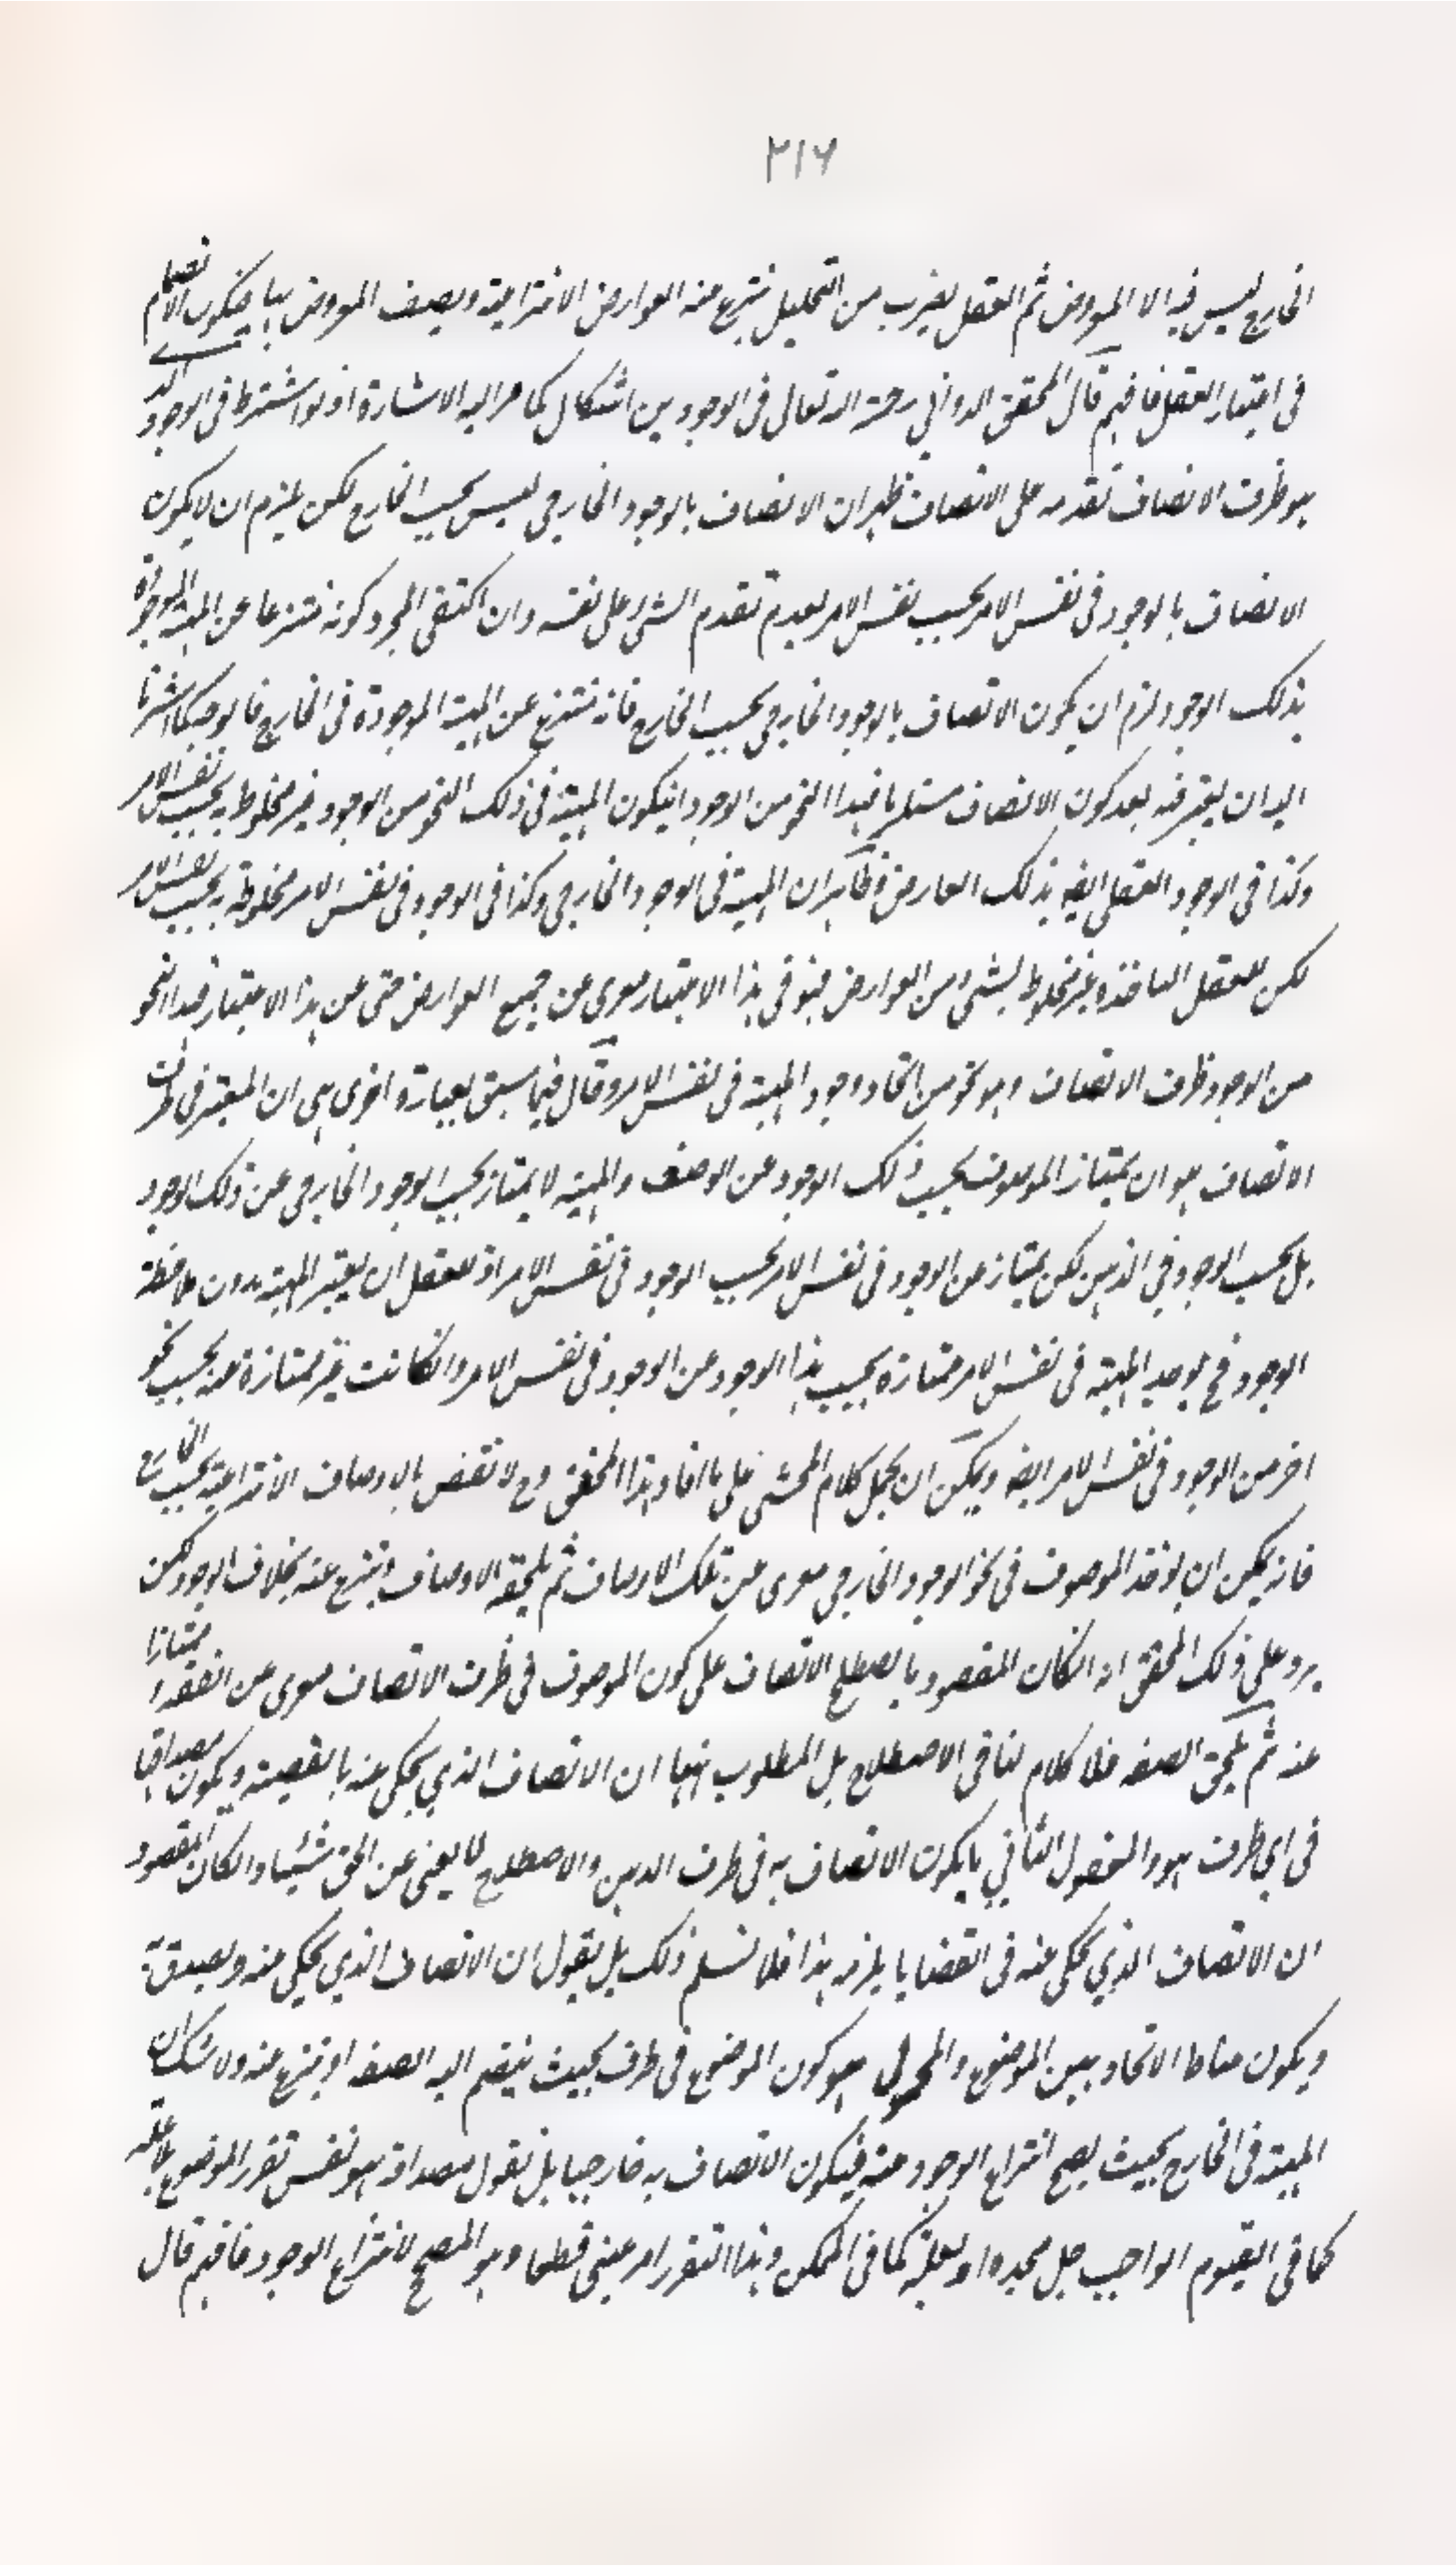 ٢١٦
الخارج ليس فيه الا المعروض ثم العقل بضرب من التحليل ينتزع منه العوارض الانتزاعية ويصف المعروض بها فيكون الانضمام
فى اعتبار العقل فافهم قال المحقق الدوانى رحمة الله تعالى فى الوجود بين اشكال كما مر اليه الاشارة اذ لو اشترط فى الوجود الذى
هو ظرف الاتصاف تقدمه على الاتصاف ظهر ان الاتصاف بالوجود الخارجى ليس بحسب الخارج لكن يلزم ان لا يكون
الاتصاف بالوجود فى نفس الامر بحسب نفس الامر لعدم تقدم الشئ على نفسه وان اكتفى بمجرد كونه منتزعا عن المهية الموجودة
بذلك الوجود لزم ان يكون الاتصاف بالوجود الخارجى بحسب الخارج فانه منتزع عن المهية الموجودة فى الخارج فالوجه كما اشرنا
اليه ان يعتبر فيه بعد كون الاتصاف مستلزما لهذا النحو من الوجود ان يكون المهية فى ذلك النحو من الوجود غير مخلوط به بحسب نفس الامر
وكذا فى الوجود العقلى ايضا بذلك العارض وظاهر ان المهية فى الوجود الخارجى وكذا فى الوجود فى نفس الامر مخلوطة به بحسب نفس الامر
لكن للعقل ان ياخذه غير مخلوط بشئ من العوارض فهو فى هذا الاعتبار معرى عن جميع العوارض حتى عن هذا الاعتبار فهذا النحو
من الوجود ظرف الاتصاف وهو نحو من انحاء وجود المهية فى نفس الامر وقال فيما سبق بعبارة اخرى هى ان المعتبر فى ظرف
الاتصاف هو ان يمتاز الموصوف بحسب ذلك الوجود عن الوصف والمهية لا يمتاز بحسب الوجود الخارجى عن ذلك الوجود
بل بحسب الوجود فى الذهن لكن يمتاز عن الوجود فى نفس الامر بحسب الوجود فى نفس الامر اذ للعقل ان يعتبر المهية بدون ملاحظة
الوجود فح يوجد المهية فى نفس الامر ممتازة بحسب هذا الوجود عن الوجود فى نفس الامر وان كانت غير ممتازة عنه بحسب نحو
اخر من الوجود فى نفس الامر ايضا ويمكن ان يحمل كلام المحشى على ما افاد هذا المحقق وح لا نقض بالاوصاف الانتزاعية بحسب الخارج
فانه يمكن ان يوخذ الموصوف فى نحو الوجود الخارجى معرى عن تلك الاوصاف ثم يلحقه الاوصاف وينتزع عنه بخلاف الوجود لكن
يرد على ذلك المحقق انه ان كان المقصود انا نصطلح الاتصاف على كون الموصوف فى ظرف الاتصاف معرى عن الصفة ممتازا
عنه ثم يلحق الصفة فلا كلام لنا فى الاصطلاح بل المطلوب ههنا ان الاتصاف الذى يحكى عنه بالقضية ويكون مصداقا
فى اى ظرف هو والمعقول الثانى ما يكون الاتصاف به فى ظرف الذهن والاصطلاح لا يغنى عن الحق شيئا وان كان المقصود
ان الاتصاف الذى يحكى عنه فى القضايا يلزمه هذا فلا نسلم ذلك بل نقول ان الاتصاف الذى يحكى عنه ويصدق به
ويكون مناط الاتحاد بين الموضوع والمحمول هو كون الموضوع فى ظرف بحيث ينضم اليه الصفة او ينتزع عنه ولا شك ان
المهية فى الخارج بحيث يصح انتزاع الوجود عنه فيكون الاتصاف به خارجيا بل نقول مصداقه هو نفس تقرر الموضوع بلا علة
كما فى القيوم الواجب جل مجده او بعلة كما فى الممكن وهذا التقرر امر عينى قطعا وهو المصحح لانتزاع الوجود فافهم قال